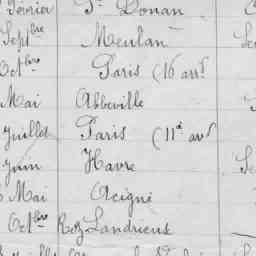 février St Donan
Septbre Meulan
Octbre Paris (16 arrt
Mai Abbeville
Juillet Paris (11e arrt
Juin Havre Se
Mai Acigné
Octbre Roz Landrieux